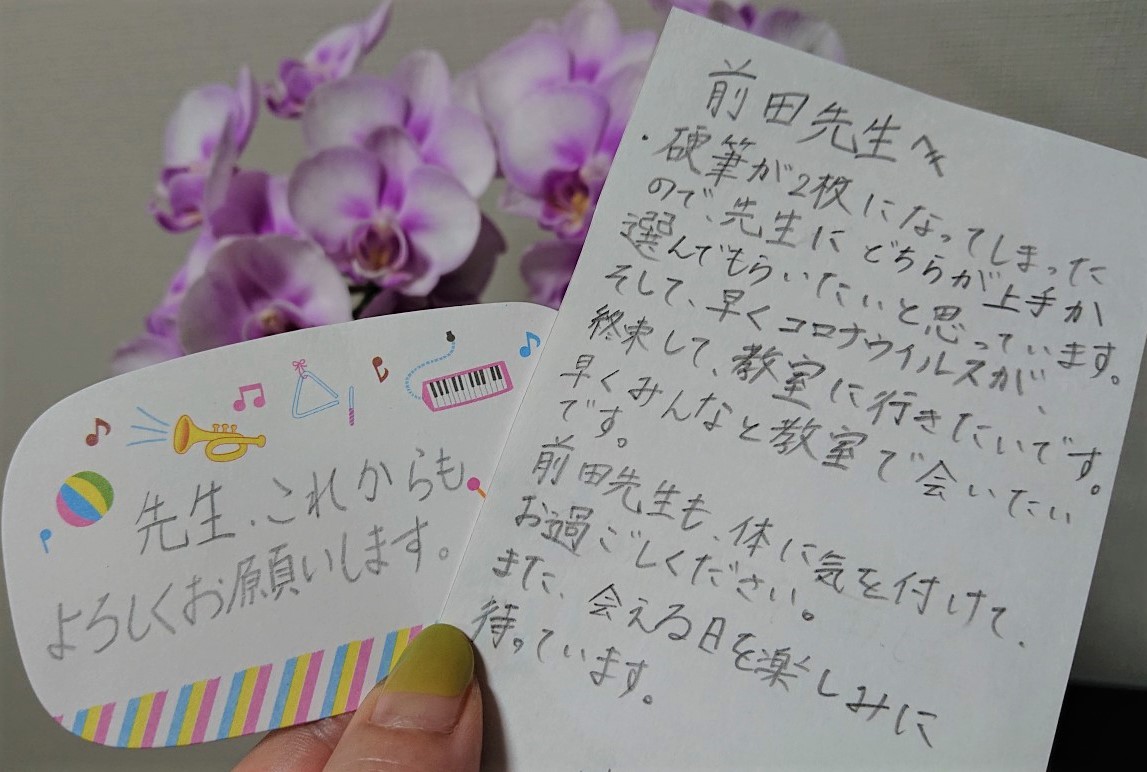 前田先生へ
・硬筆が2枚になってしまった
ので、先生にどちらが上手か
選んでもらいたいと思っています。
そして、早くコロナウイルスが、
終束して、教室に行きたいです。
早くみんなと教室で会いたい
です。
前田先生も、体に気を付けて、
お過ごしください。
また、会える日を楽しみに
待っています。
先生、これからも
よろしくお願いします。